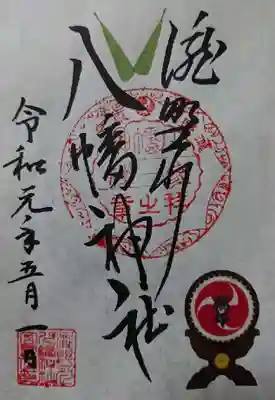 滝野川
八幡神社
令和元年五月一日